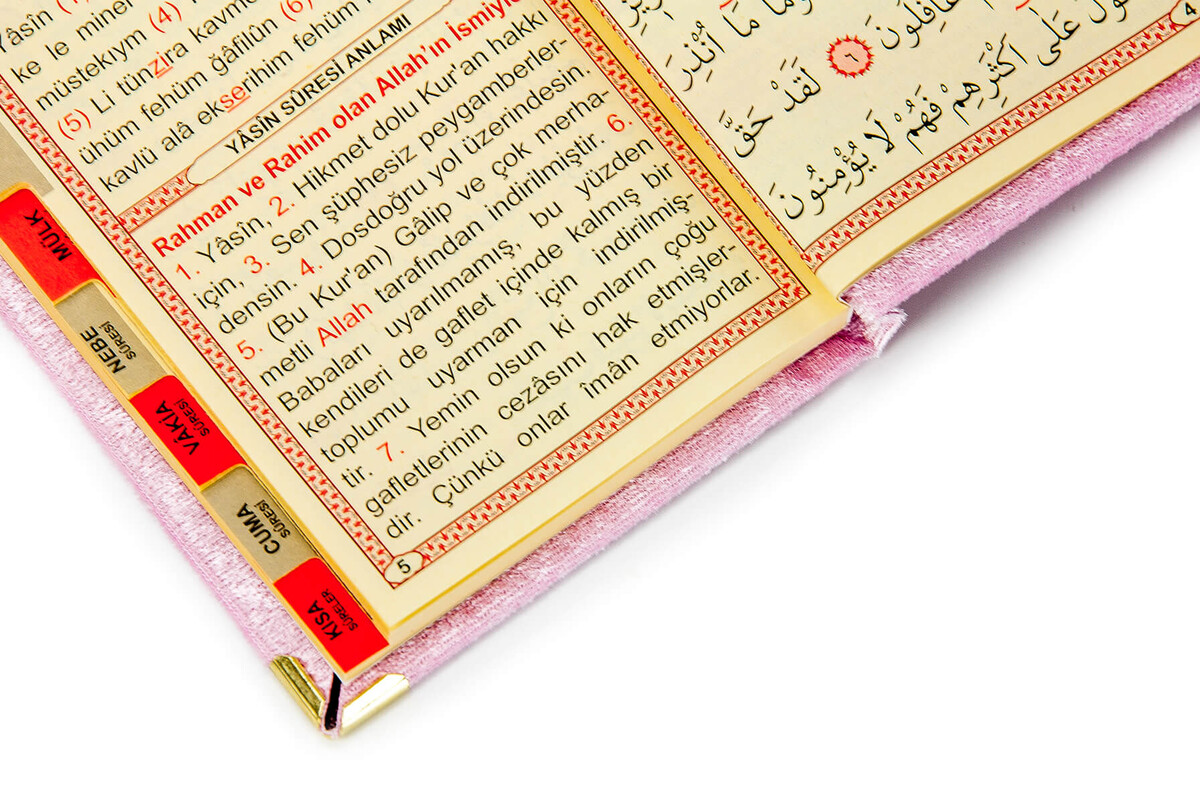 Yâsîn (1)
ke le minel
müstekıym (4)
(5) Li tünzira kavme
ühüm fehüm ğâfilûn (6)
kavlü alâ ekserihim fehüm
YÂSÎN SÛRESİ ANLAMI
Rahman ve Rahim olan Allah'ın İsmiyle
1. Yâsîn, 2. Hikmet dolu Kur'an hakkı
için, 3. Sen şüphesiz peygamberler-
densin. 4. Dosdoğru yol üzerindesin.
5. (Bu Kur'an) Gâlip ve çok merha-
metli Allah tarafından indirilmiştir. 6.
Babaları uyarılmamış, bu yüzden
kendileri de gaflet içinde kalmış bir
toplumu uyarman için indirilmiş-
tir. 7. Yemin olsun ki onların çoğu
gafletlerinin cezâsını hak etmişler-
dir. Çünkü onlar îmân etmiyorlar.
5
MÜLK
NEBE
SÛRESİ
VÂKIA
SÛRESİ
CUMA
SÛRESİ
KISA
SÛRELER
مَا أُنْذِرَ
غَافِلُونَ ٦ لَقَدْ حَقَّ
عَلَى أَكْثَرِهِمْ فَهُمْ لَا يُؤْمِنُونَ
4